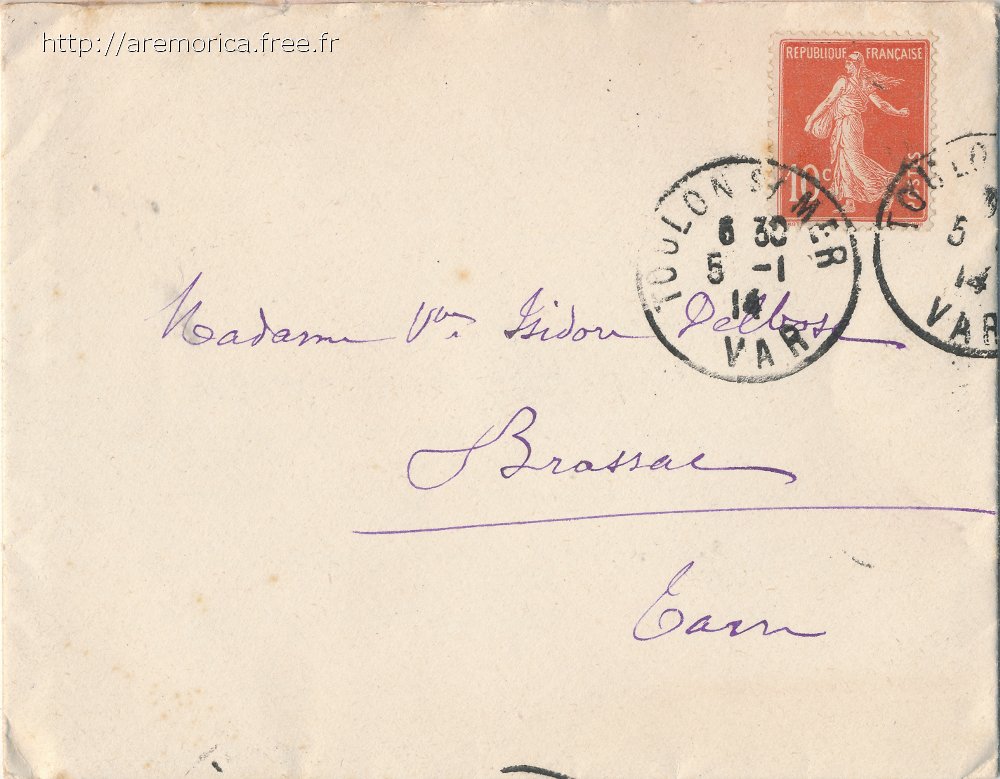 http://aremorica.free.fr
REPUBLIQUE FRANÇAISE
10 c
POSTES
TOULON S/ MER
6 30
5 -1
14
VAR
TOULO
5
14
VAR
Madame Vve Isidore Delbosc
Brassac
Tarn